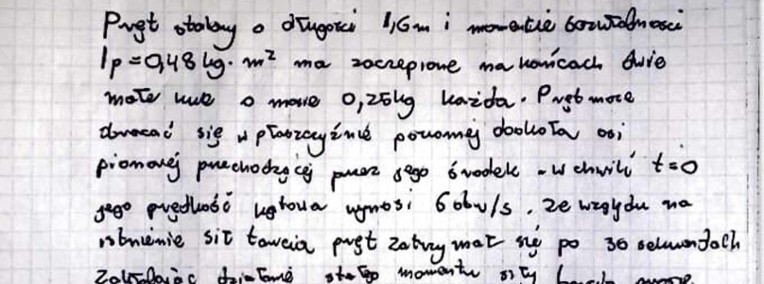 Pręt stalowy o długości 1,6m i momencie bezwładności
Ip=0,48 kg·m² ma zaczepione na końcach dwie
małe kule o masie 0,25kg każda. Pręt może
obracać się w płaszczyźnie poziomej dookoła osi
pionowej przechodzącej przez jego środek. w chwili t=0
jego prędkość kątowa wynosi 6 obr/s. ze względu na
istnienie sił tarcia pręt zatrzymał się po 30 sekundach
Zakładając działanie stałego momentu siły